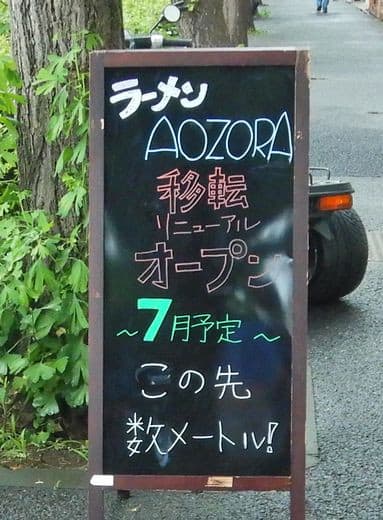 ラーメン
AOZORA
移転
リニューアル
オープン
～7月予定～
この先
数メートル!